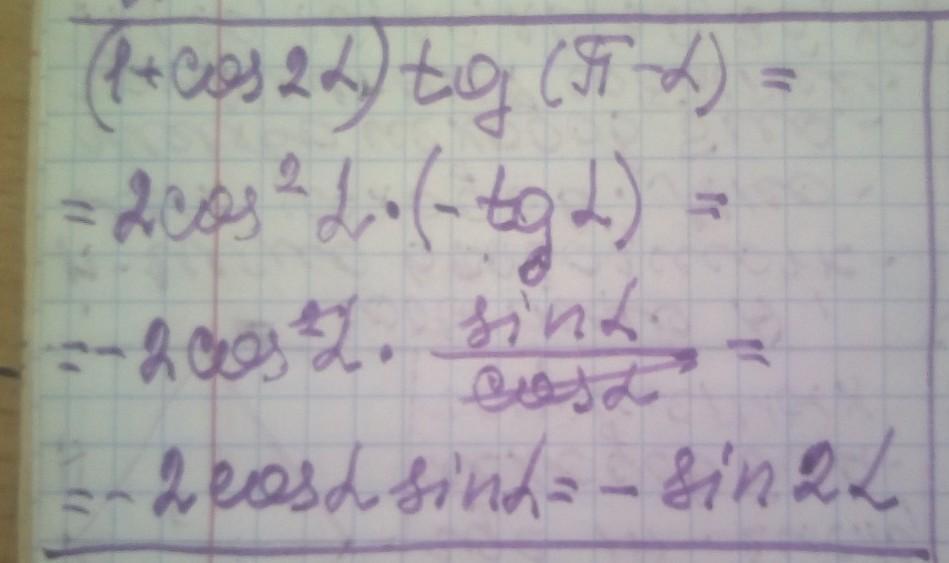 (1+cos2α) tg (π-α) =
= 2cos² α · (- tg α) =
= - 2cos² α · sin α / cos α =
= - 2cosα sinα = - sin 2α